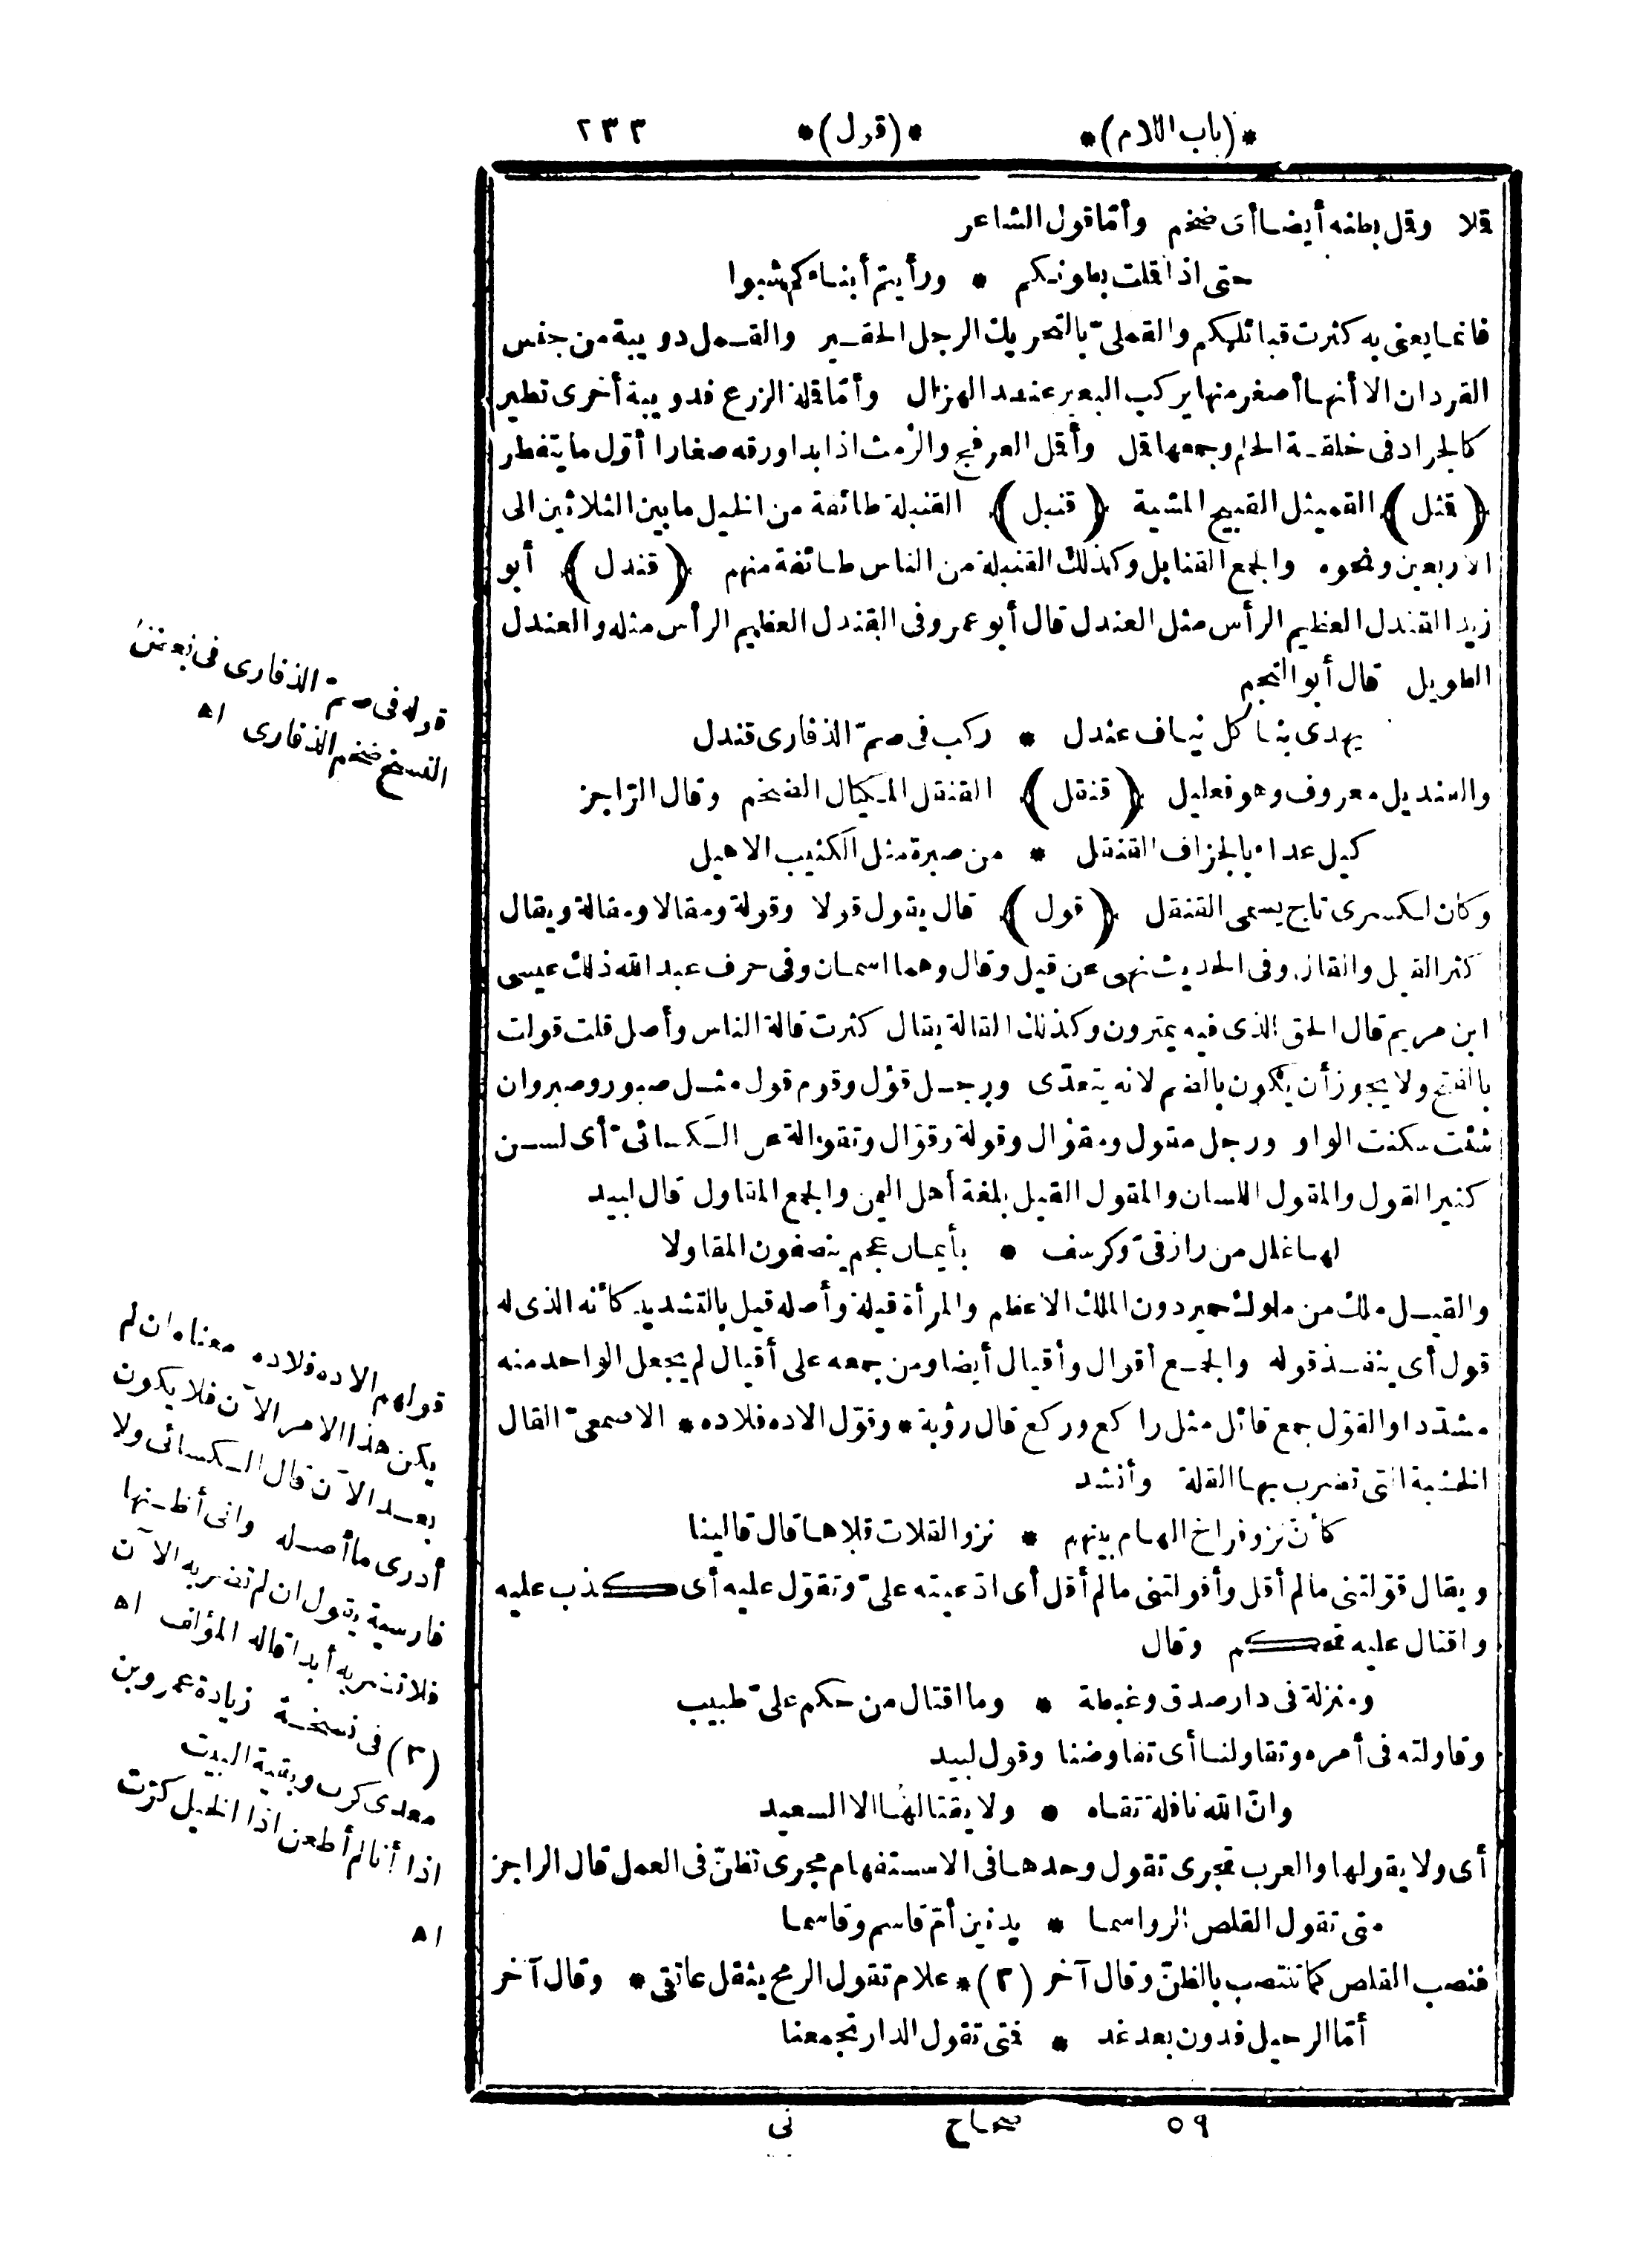 *(باب اللام)* *(قول)* ٢٣٣
قلا وقل بطنه أيضا أى ضخم وأمّا قول الشاعر
حتى اذا قملت بطونكم * ورأيتم أبناءكم شبوا
فانما يعنى به كثرت قبائلكم والقملىّ بالتحريك الرجل الحقير والقمل دويبة من جنس
القردان الا أنها أصغر منها يركب البعير عند الهزال وأمّا قملة الزرع فدويبة أخرى تطير
كالجراد فى خلقة الحلم وجمعها قل وأقل العرفج والرمث اذا بدا ورقه صغارا أوّل ما يتفطر
(قثل) القميثل القبيح المشية (قنبل) القنبلة طائفة من الخيل ما بين الثلاثين الى
الأربعين ونحوه والجمع القنابل وكذلك القنبلة من الناس طائفة منهم (قندل) أبو
زيد القندل العظيم الرأس مثل العندل قال أبو عمرو فى القندل العظيم الرأس مثله والعندل
الطويل قال أبو النجم
يهدى بنا كل نياف عندل * ركب فى صمّ الذفارى قندل
والقنديل معروف وهو فعليل (قنقل) القنقل المكيال الضخم وقال الرّاجز
كيل عداء بالجزاف القنقل * من صبرة مثل الكثيب الاهيل
وكان لكسرى تاج يسمى القنقل (قول) قال يقول قولا وقولة ومقالا ومقالة ويقال
كثر القيل والقال وفى الحديث نهى عن قيل وقال وهما اسمان وفى حرف عبد الله ذلك عيسى
ابن مريم قال الحق الذى فيه يمترون وكذلك القالة يقال كثرت قالة الناس وأصل قلت قولت
بالفتح ولا يجوز أن يكون بالضم لانه يتعدّى ورجل قؤل وقوم قول مثل صبور وصبر وان
شئت سكنت الواو ورجل مقول ومقوال وقولة وقوّال وتقوالة عن الكسائىّ أى لسن
كثير القول والمقول اللسان والمقول القيل بلغة أهل اليمن والجمع المقاول قال لبيد
لها غلل من رازقىّ وكرسف * بأيمان عجم ينصفون المقاولا
والقيل ملك من ملوك حمير دون الملك الاعظم والمرأة قيلة وأصله قيل بالتشديد كأنه الذى له
قول أى ينفذ قوله والجمع أقوال وأقيال أيضا ومن جمعه على أقيال لم يجعل الواحد منه
مشدّدا والقوّل جمع قائل مثل راكع وركع قال رؤبة * وقوّل الاده فلاده * الاصمعىّ القال
الخشبة التى تضرب بها القلة وأنشد
كأنّ نزو فراخ الهام بينهم * نزو القلات قلاها قال قالينا
ويقال قوّلتنى ما لم أقل وأقولتنى ما لم أقل أى ادّعيته علىّ وتقوّل عليه أى كذب عليه
واقتال عليه تحكم وقال
ومنزلة فى دار صدق وغبطة * وما اقتال من حكم علىّ طبيب
وقاولته فى أمره وتقاولنا أى تفاوضنا وقول لبيد
وانّ الله نافلة تقاه * ولا يقتالها الا السعيد
أى ولا يقولها والعرب تجرى تقول وحدها فى الاستفهام مجرى تظنّ فى العمل قال الراجز
متى تقول القلص الرواسما * يدنين أمّ قاسم وقاسما
فنصب القلص كما تنتصب بالظنّ وقال آخر (٢) * علام تقول الرمح يثقل عاتقى * وقال آخر
أمّا الرحيل فدون بعد غد * فمتى تقول الدار تجمعنا
٥٩ صحاح نى
قوله فى صمّ الذفارى فى بعض
النسخ ضخم الذفارى اه
قولهم الاده فلاده معناه ان لم
يكن هذا الامر الآن فلا يكون
بعد الآن قال الكسائى ولا
أدرى ما أصله وانى أظنها
فارسية يقول ان لم تضربه الآن
فلا تضربه أبدا قاله المؤلف اه
(٢) فى نسخة زيادة عمرو بن
معدى كرب وبقية البيت
اذا أنا لم أطعن اذا الخيل كرّت
اه